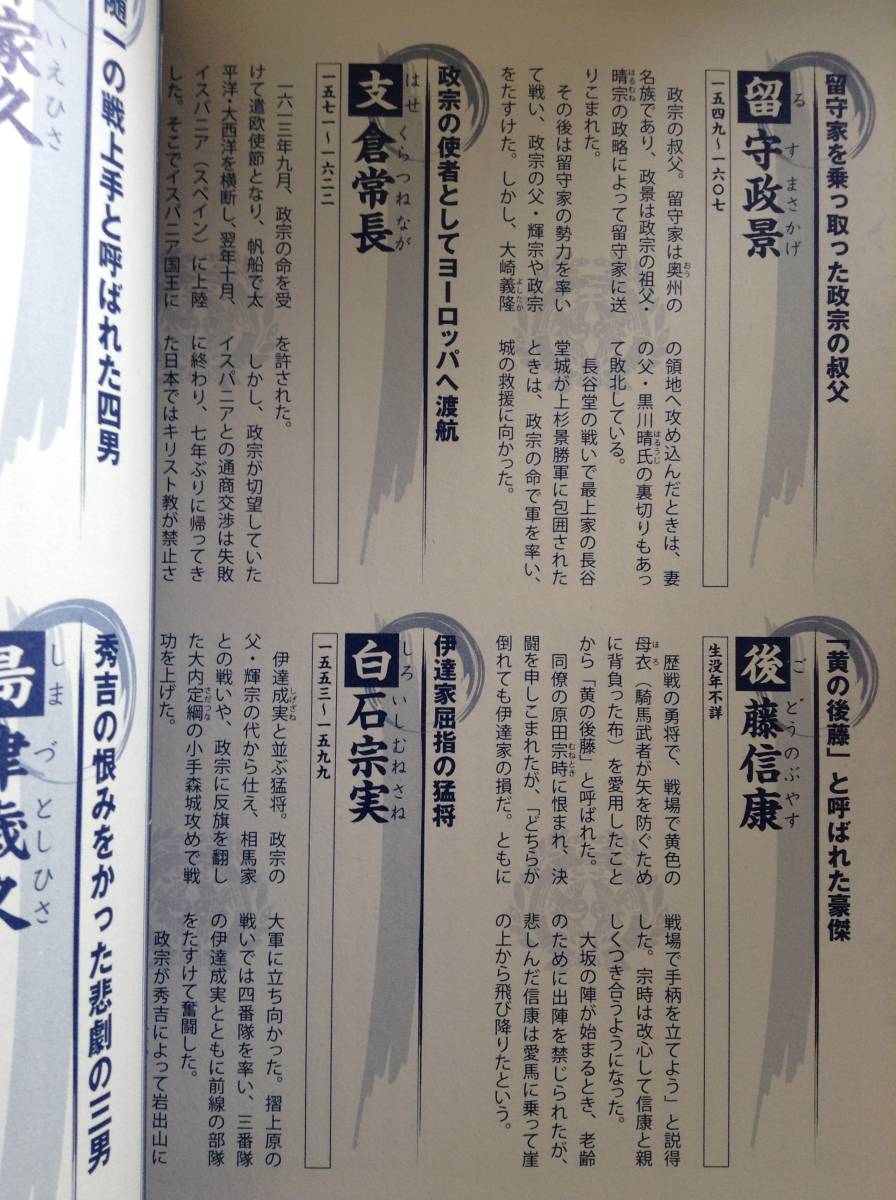 留守家を乗っ取った政宗の叔父
るすまさかげ
留守政景
一五四九〜一六〇七
おう
政宗の叔父。留守家は奥州の
名族であり、政景は政宗の祖父・
はるむね
晴宗の政略によって留守家に送
りこまれた。
その後は留守家の勢力を率い
て戦い、政宗の父・輝宗や政宗
よしたか
をたすけた。しかし、大崎義隆
の領地へ攻め込んだときは、妻
はるうじ
の父・黒川晴氏の裏切りもあっ
て敗北している。
長谷堂の戦いで最上家の長谷
堂城が上杉景勝軍に包囲された
ときは、政宗の命で軍を率い、
城の救援に向かった。
政宗の使者としてヨーロッパへ渡航
はせくらつねなが
支倉常長
一五七一〜一六二二
一六一三年九月、政宗の命を受
けて遣欧使節となり、帆船で太
平洋・大西洋を横断し、翌年十月、
イスパニア（スペイン）に上陸
した。そこでイスパニア国王に
を許された。
しかし、政宗が切望していた
イスパニアとの通商交渉は失敗
に終わり、七年ぶりに帰ってき
た日本ではキリスト教が禁止さ
「黄の後藤」と呼ばれた豪傑
ごどうのぶやす
後藤信康
生没年不詳
歴戦の勇将で、戦場で黄色の
ほろ
母衣（騎馬武者が矢を防ぐため
に背負った布）を愛用したこと
から「黄の後藤」と呼ばれた。
むねとき
同僚の原田宗時に恨まれ、決
闘を申しこまれたが、「どちらが
倒れても伊達家の損だ。ともに
戦場で手柄を立てよう」と説得
した。宗時は改心して信康と親
しくつき合うようになった。
大坂の陣が始まるとき、老齢
のために出陣を禁じられたが、
悲しんだ信康は愛馬に乗って崖
の上から飛び降りたという。
伊達家屈指の猛将
しろいしむねざね
白石宗実
一五五三〜一五九九
しげざね
伊達成実と並ぶ猛将。政宗の
父・輝宗の代から仕え、相馬家
との戦いや、政宗に反旗を翻し
さだつな
た大内定綱の小手森城攻めで戦
功を上げた。
大軍に立ち向かった。摺上原の
戦いでは四番隊を率い、三番隊
の伊達成実とともに前線の部隊
をたすけて奮闘した。
政宗が秀吉によって岩出山に
随一の戦上手と呼ばれた四男
いえひさ
家久
秀吉の恨みをかった悲劇の三男
しまづとしひさ
島津歳久